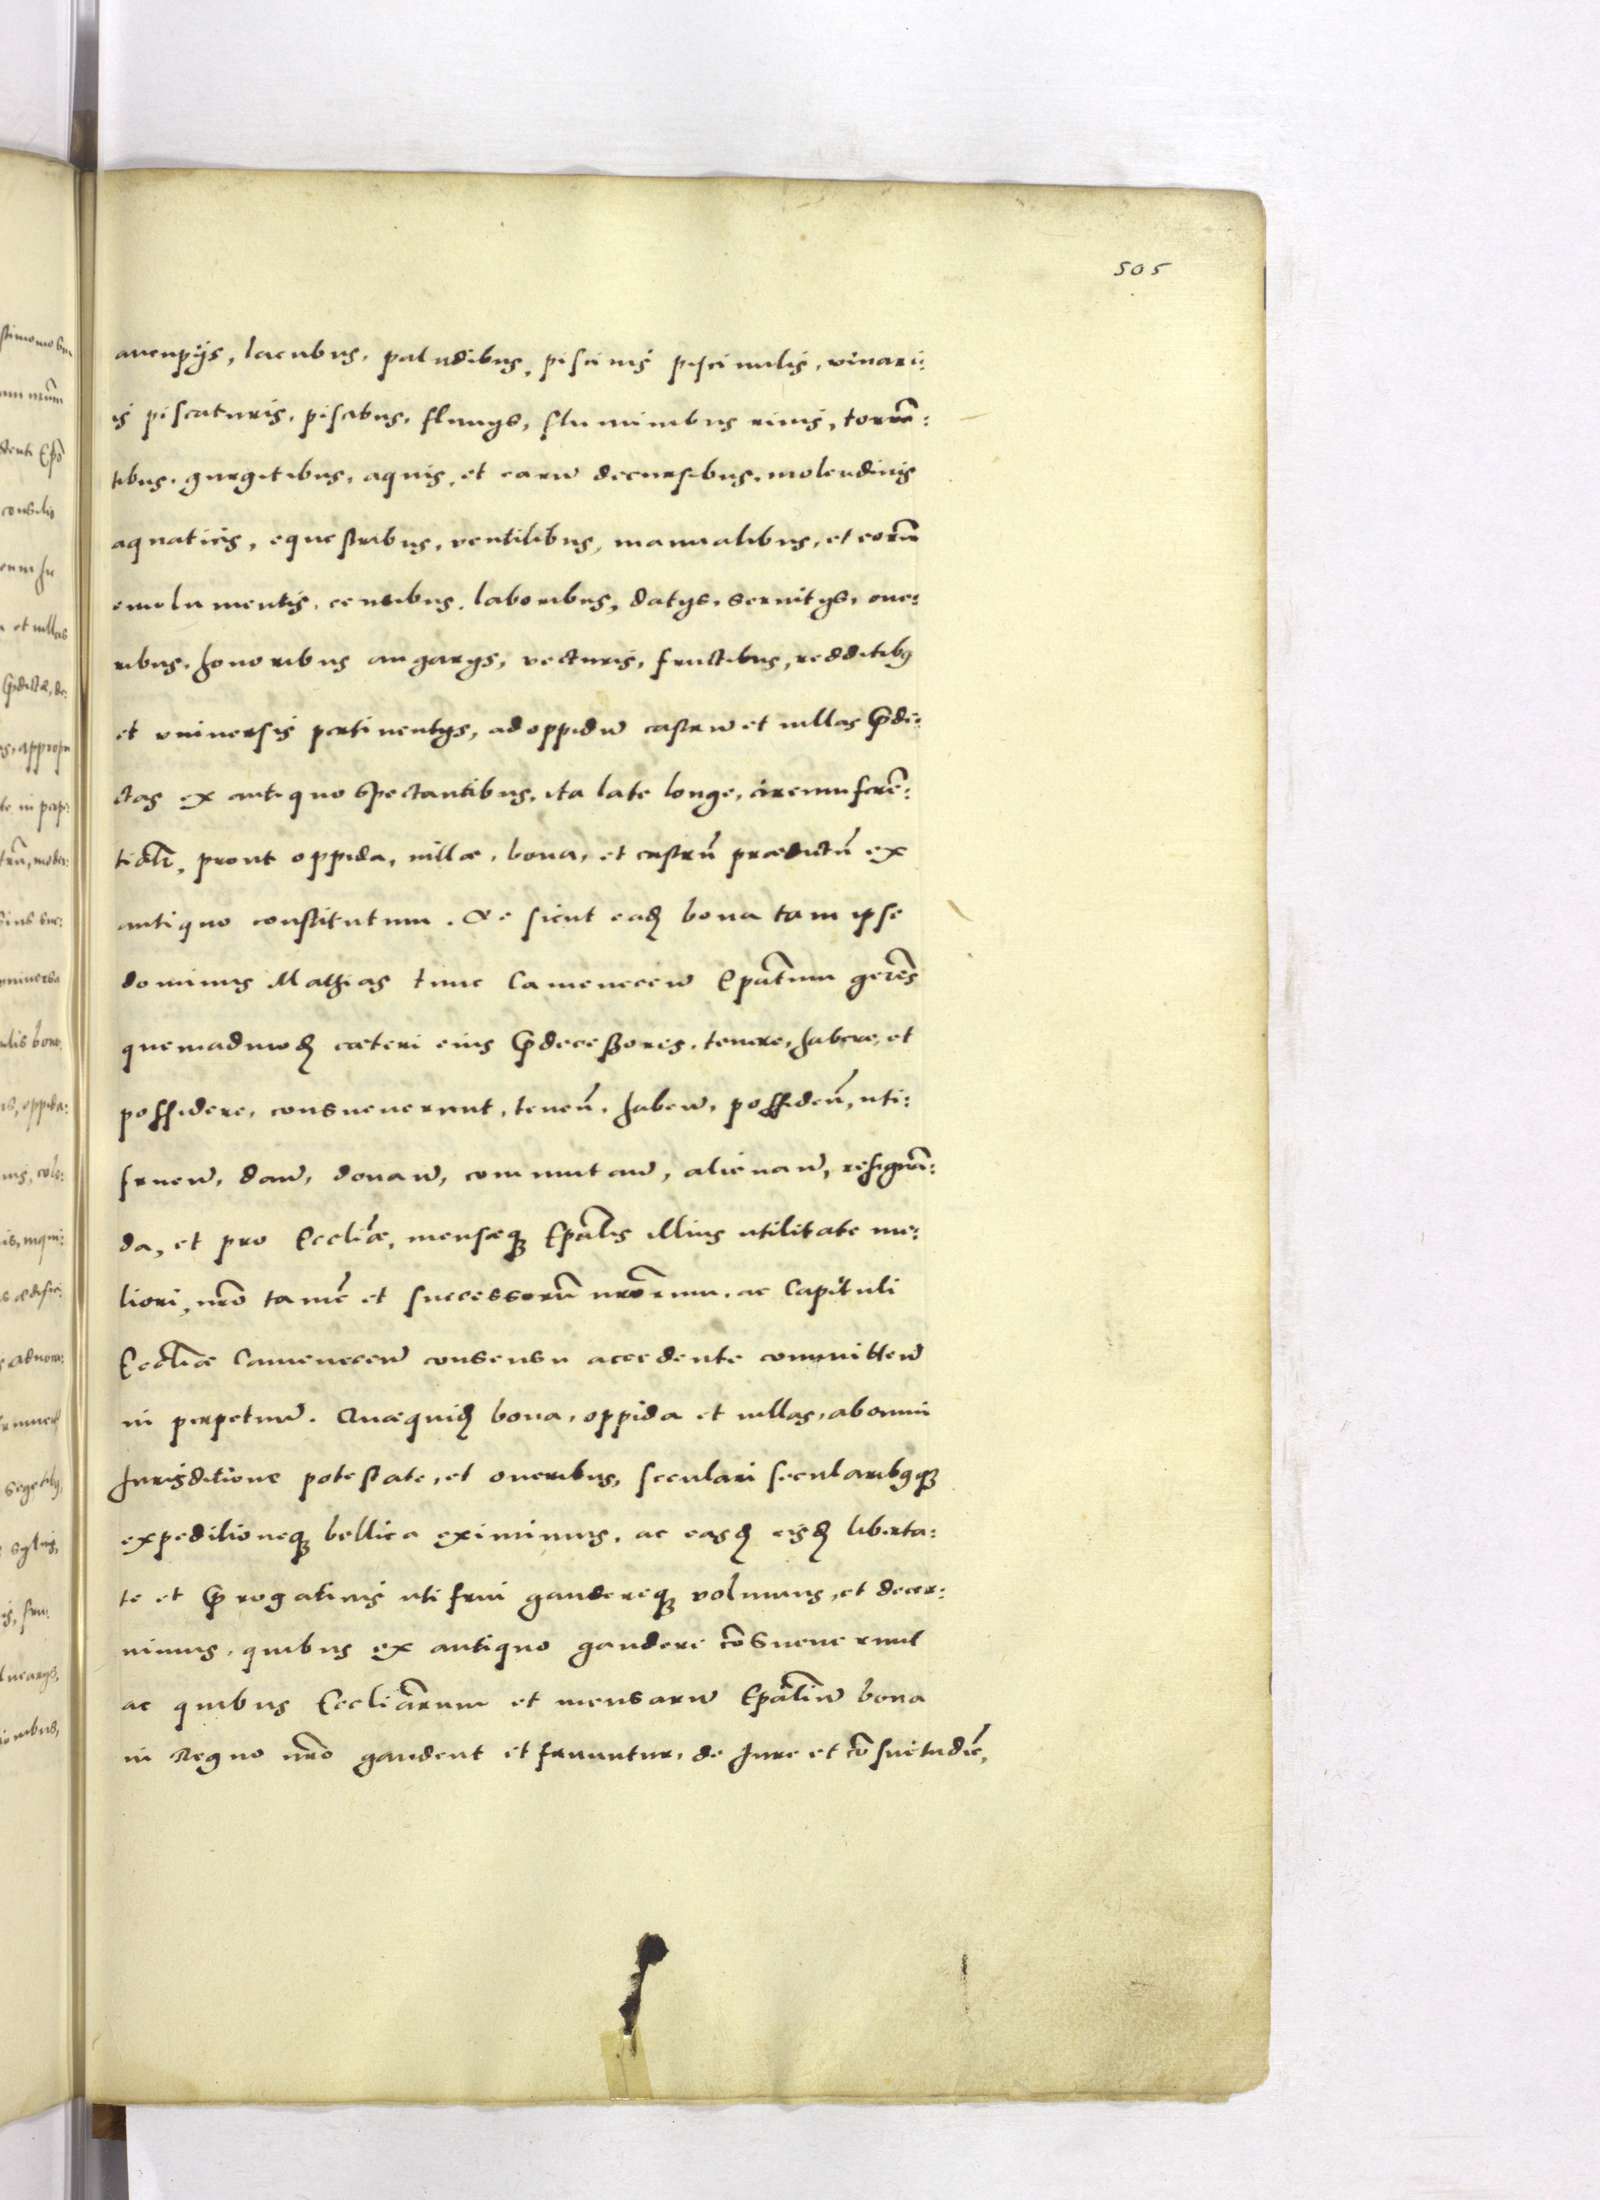 505
aucupijs, lacubus, paludibus, piscinis piscinulis, viuari:
is piscaturis, piscibus, fluuijs, fluminibus riuis, torrẽ:
tibus, gurgitibus, aquis, et earũ decursibus, molendinis
aquaticis, equestribus, ventilibus, manualibus, et eorũ
emolumentis, censibus, laboribus, datijs, seruitijs, one:
ribus, honoribus angarijs, vecturis, fructibus, redditibꝰ
et vniuersis pertinentijs, ad oppidũ castrũ et uillas p̃di:
ctas ex antiquo spectantibus, ita late longe, circumferẽ:
tialr̃, prout oppida, uillæ, bona, et castrũ prædictũ ex
antiquo constitutum. Ac sicut eadẽ bona tam ipse
dominus Mathias tunc Camenecen̄ Ep̃atum gerẽs
quemadmodũ cæteri eius p̃decessores, tenere, habere, et
possidere, consueuerunt, tenen̄, haben̄, possiden̄, uti:
fruen̄, dan̄, donan̄, commutan̄, alienan̄, resignã:
da, et pro Eccli̾æ, mensæqꝫ Ep̃alis illius utilitate me:
liori, nr̃o tamẽ et successorũ nr̃orum, ac Capituli
Eccl̃iæ Camenecen̄ consensu accedente committen̄
in perpetuũ. Quæquidẽ bona, oppida et uillas, ab omni
Jurisditione potestate, et oneribus, seculari secularibꝰqꝫ
expeditioneqꝫ bellica eximimus, ac easdẽ eisdẽ liberta:
te et p̃rogatiuis uti frui gaudereqꝫ volumus, et decer:
nimus, quibus ex antiquo gaudere cõsueuerunt
ac quibus Eccli̾arum et mensarũ Ep̃aliũ bona
in Regno nr̃o gaudent et fruuntur, de Jure et cõsuetudiẽ,